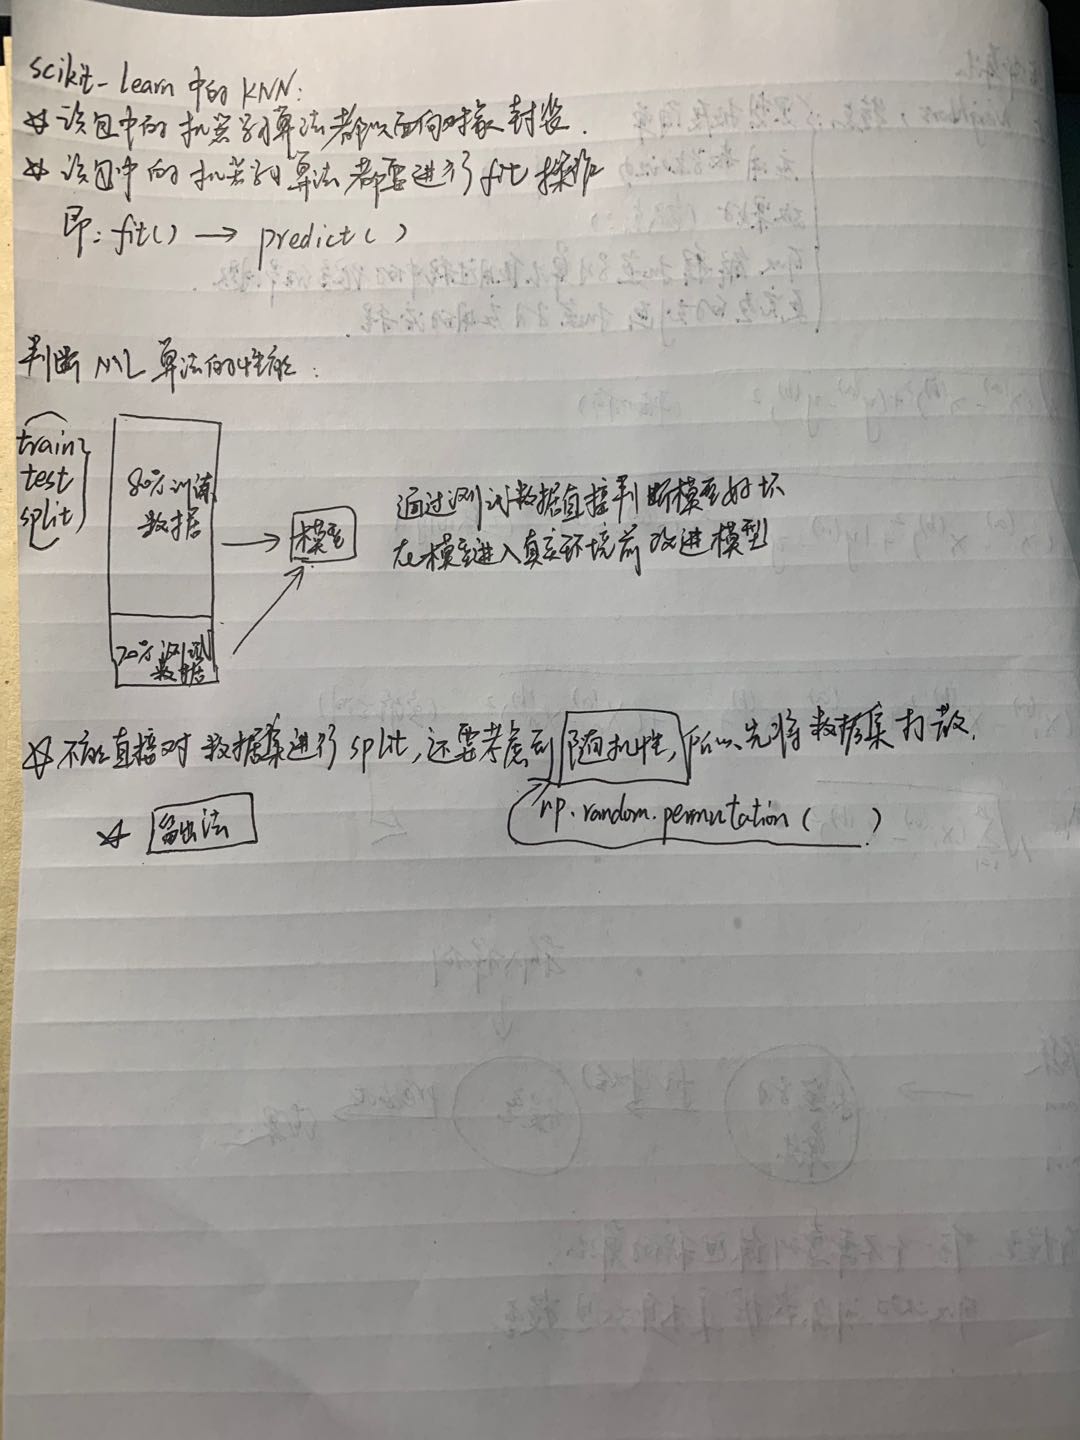 scikit-learn 中的 KNN:
☆ 该包中的机器学习算法都以面向对象封装.
☆ 该包中的机器学习算法都要进行 fit 操作
即: fit() → predict()
判断 ML 算法的性能:
train
test
split
80% 训练
数据
模型
通过测试数据直接判断模型好坏
在模型进入真实环境前改进模型
20% 测试
数据
☆ 不能直接对数据集进行 split, 还要考虑到随机性, 所以先将数据集打散.
np.random.permutation ( )
☆ 留出法